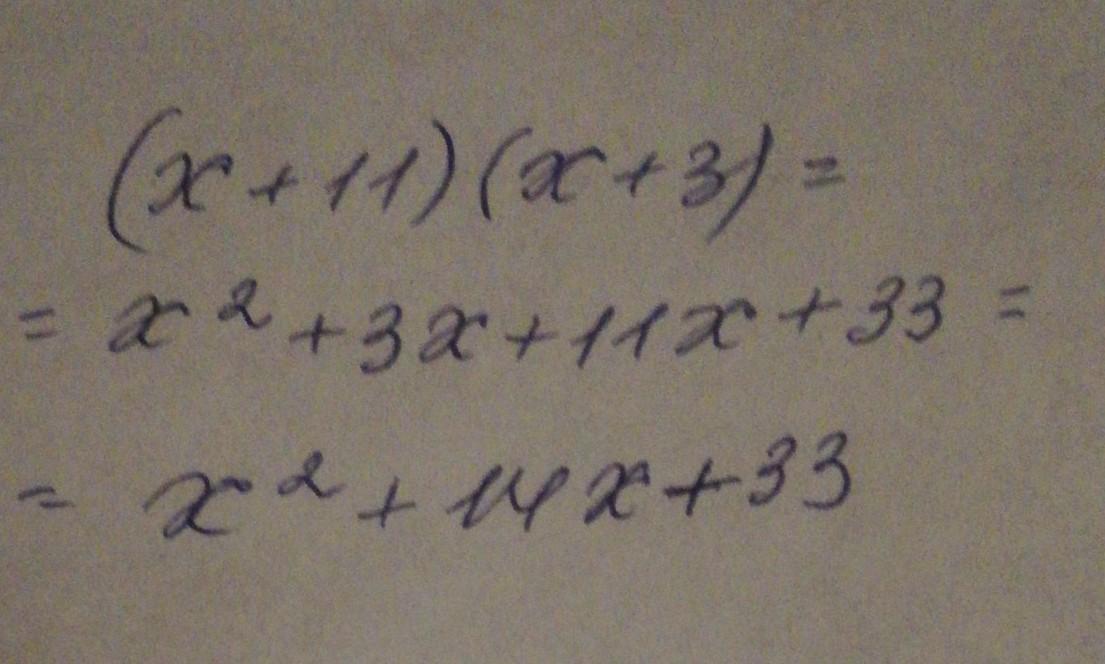 (x+11)(x+3)=
= x² +3x+11x+33 =
= x² +14x+33